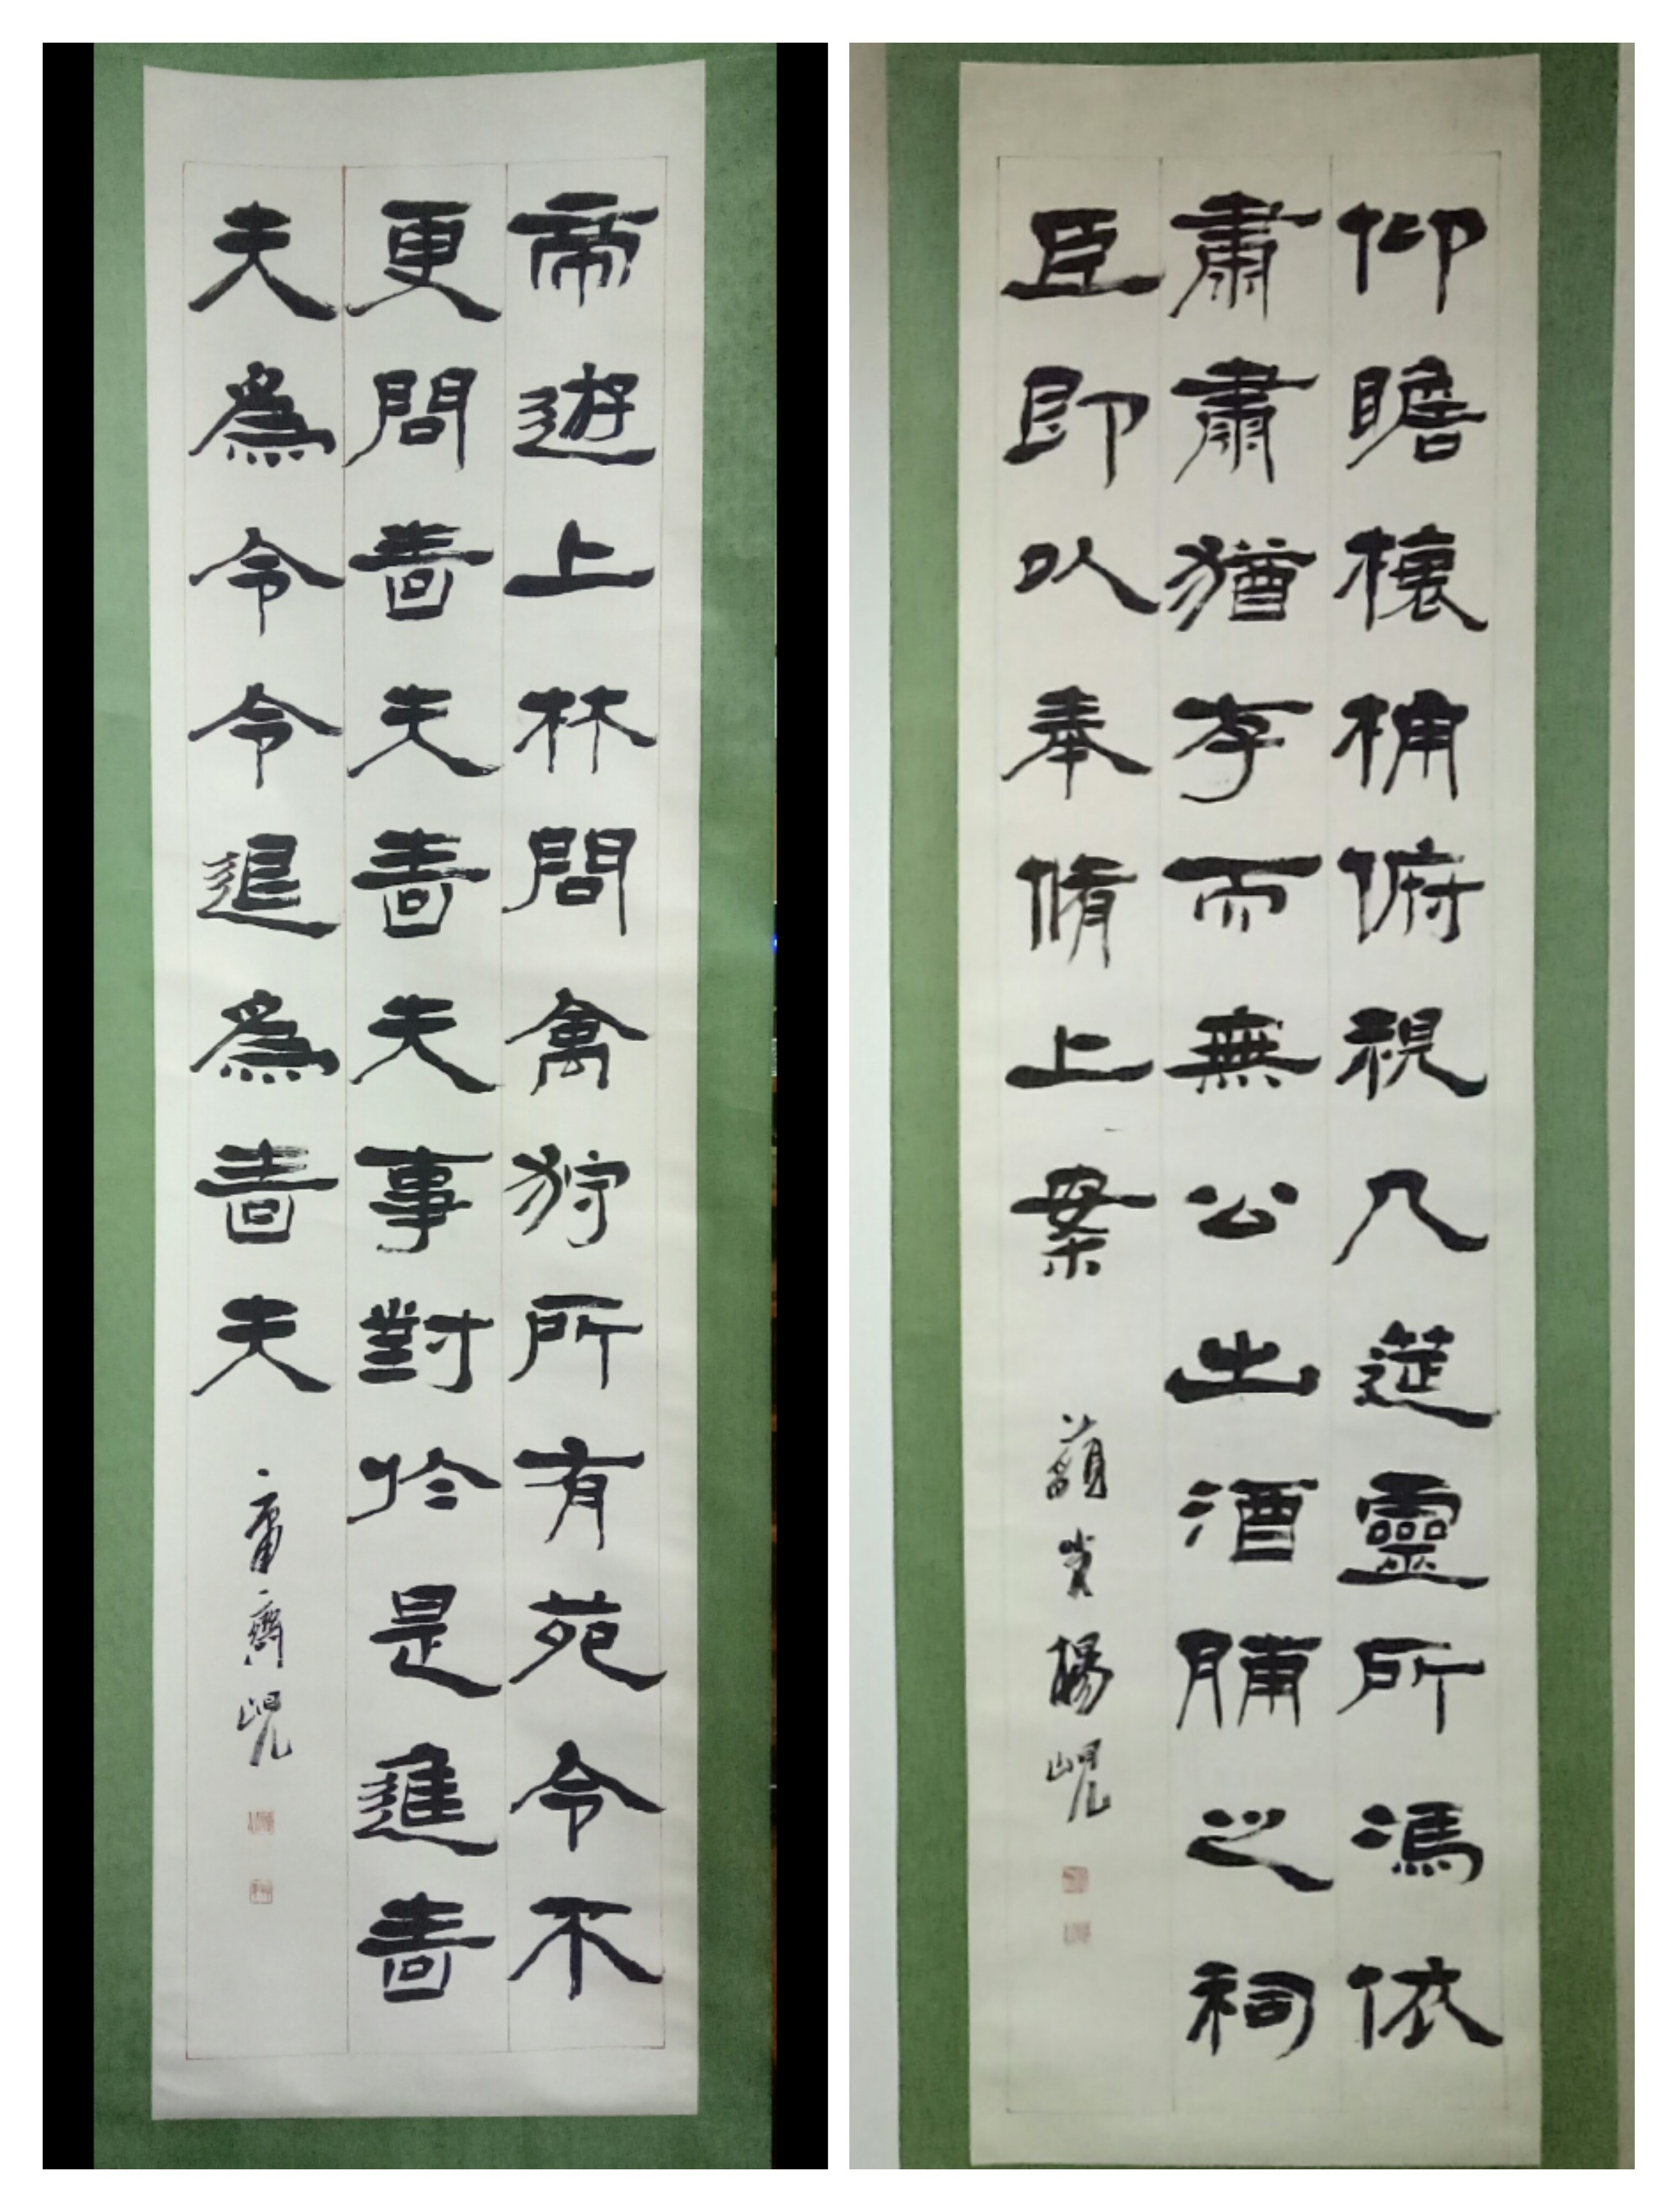 帝遊上林問禽狩所有苑令不
更問嗇夫嗇夫事對於是進嗇
夫為令令退為嗇夫
庸齋峴
仰瞻榱桷俯視几筵靈所馮依
肅肅猶存而無公出酒脯之祠
臣即以奉脩上案
楊峴